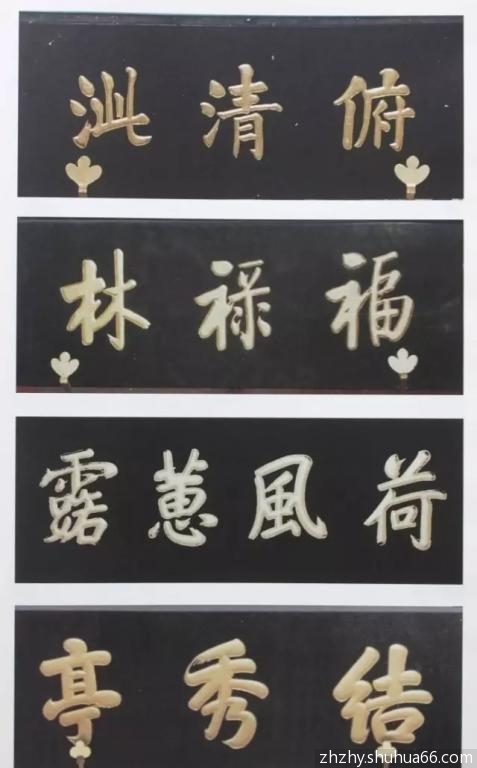 俯清泚
福禄林
荷風蕙露
結秀亭
zhzhy.shuhua66.com